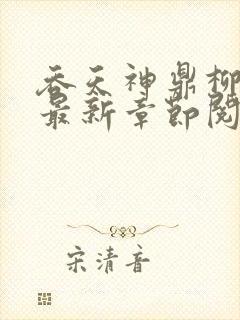 吞天神鼎柳
最新章节阅
宋清音